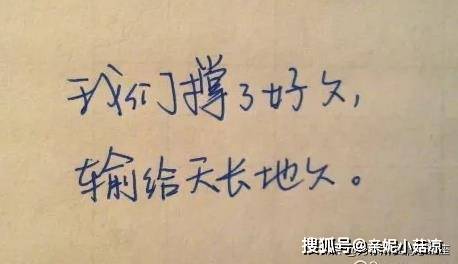 我们撑了好久，
输给天长地久。
搜狐号@亲妮小菇凉